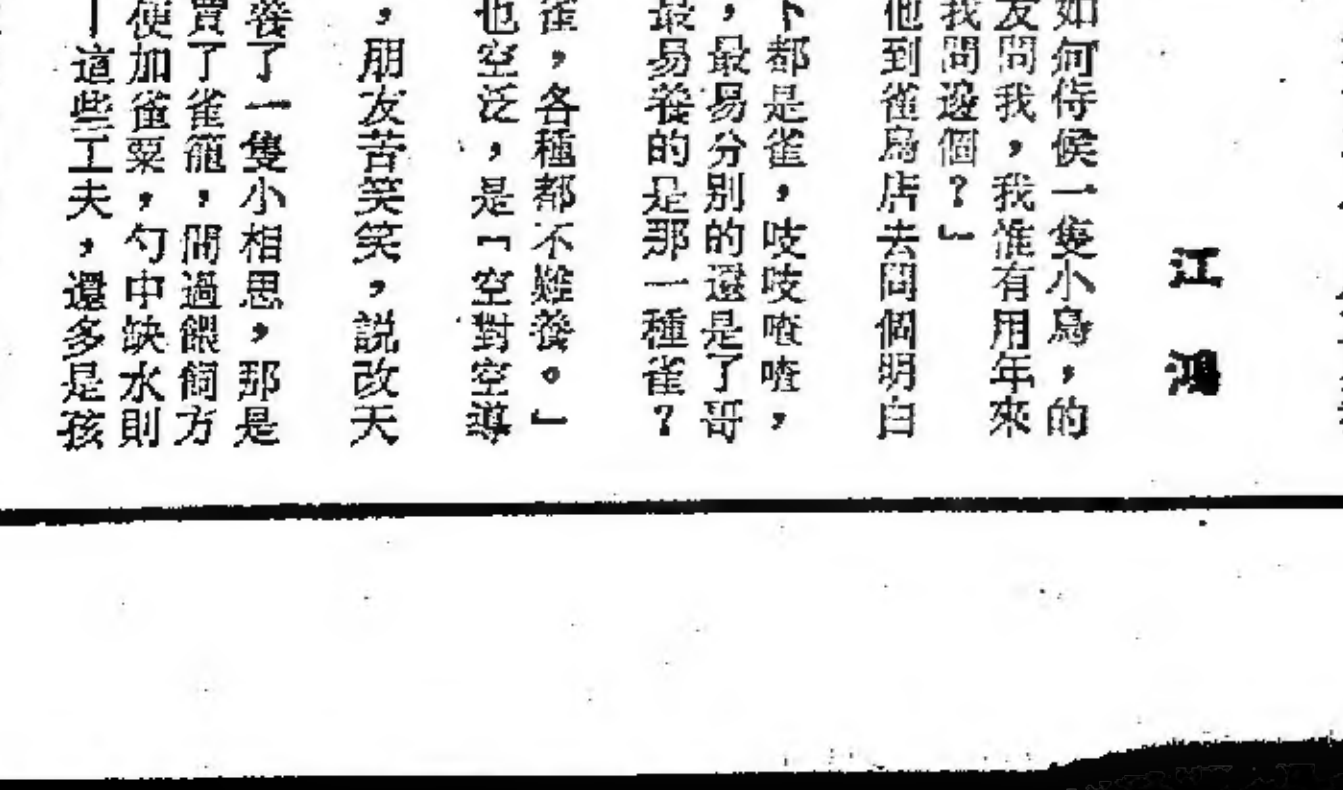 江鴻
如何侍候一隻小鳥，的
友問我，我誰有用年來
我問邊個？」
他到雀鳥店去問個明白
都是雀，吱吱喳喳，
，最易分別的還是了哥
最易養的是那一種雀？
雀，各種都不難養。」
也空泛，是「空對空導
，朋友苦笑笑，說改天
養了一隻小相思，那是
買了雀籠，問過餵飼方
便加雀粟，勺中缺水則
這些工夫，還多是孩